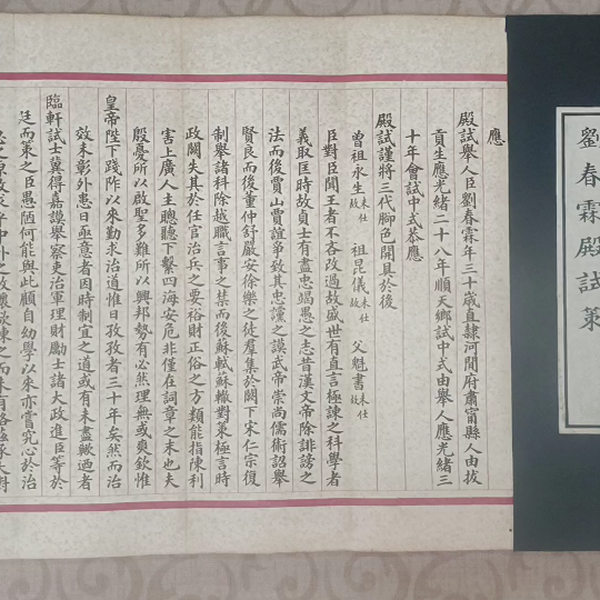 劉春霖殿試策
應
殿試舉人臣劉春霖年三十歲直隸河間府肅甯縣人由拔
貢生應光緒二十八年順天鄉試中式由舉人應光緒三
十年會試中式恭應
殿試謹將三代腳色開具於後
曾祖永生未仕故 祖昆儀未仕故 父魁書未仕故
臣對臣聞王者不吝改過故盛世有直言極諫之科學者
義取匡時故貞士有盡忠竭愚之志昔漢文帝除誹謗之
法而後賈山賈誼爭致其忠讜之謨武帝崇尚儒術詔舉
賢良而後董仲舒嚴安徐樂之徒羣集於闕下宋仁宗復
制舉諸科除越職言事之禁而後蘇軾蘇轍對策極言時
政闕失其於任官治兵之要裕財正俗之方類能指陳利
害上廣人主聰聽下繫四海安危非僅在詞章之末也夫
殷憂所以啟聖多難所以興邦勢有必然理無或爽欽惟
皇帝陛下踐阼以來勤求治道惟日孜孜者三十年矣然而治
效未彰外患日亟意者因時制宜之道或有未盡歟迺者
臨軒試士冀得嘉謨舉察吏治軍理財勵士諸大政進臣等於
廷而策之臣愚陋何能與此顧自幼學以來亦嘗究心於治